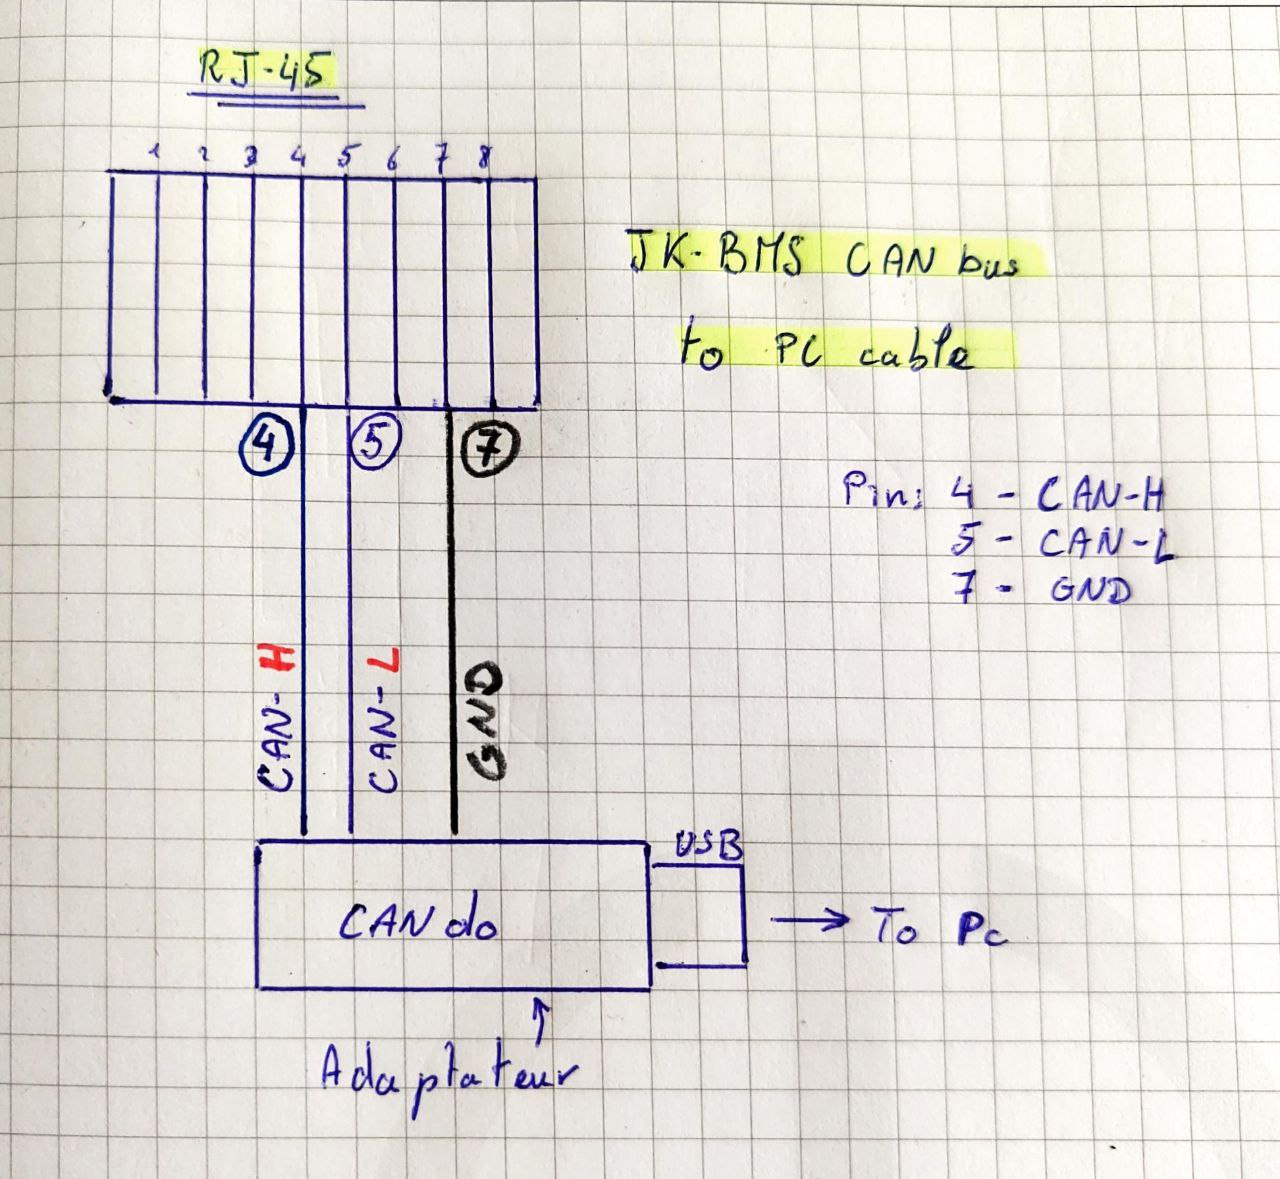 RJ-45
1 2 3 4 5 6 7 8
JK-BMS CAN bus
to PC cable
4 5 7
Pin: 4 - CAN-H
5 - CAN-L
7 - GND
CAN-H
CAN-L
GND
USB
CANdo
→ To Pc
Adaptateur